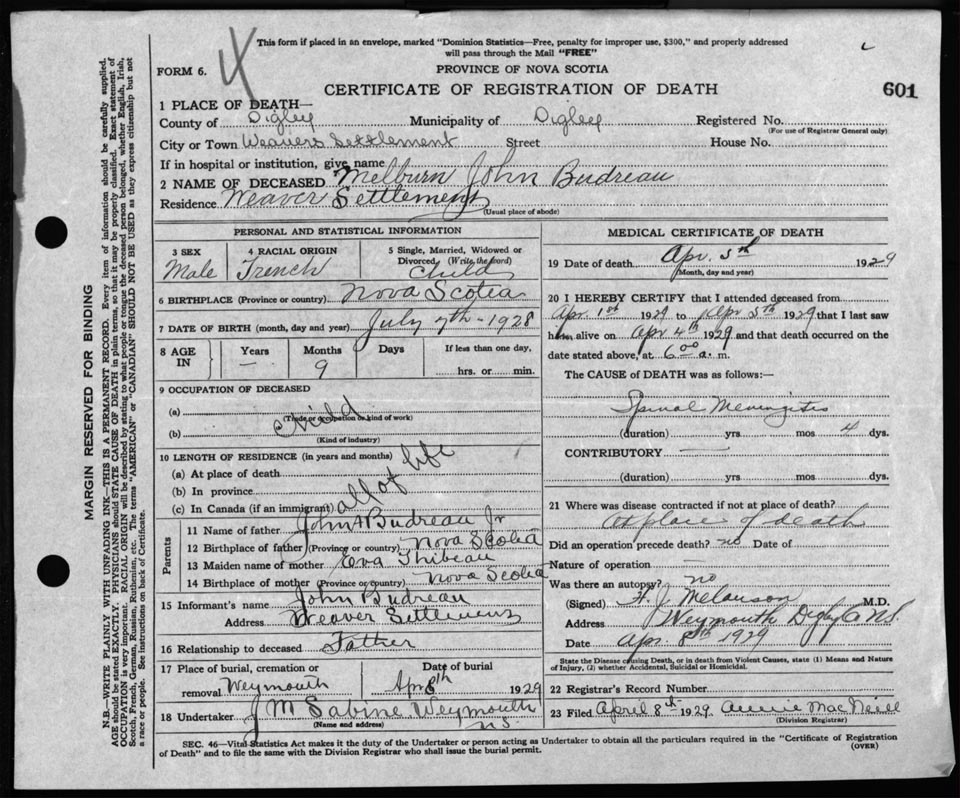 This form if placed in an envelope, marked "Dominion Statistics—Free, penalty for improper use, $300," and properly addressed
will pass through the Mail "FREE"
4
FORM 6.
PROVINCE OF NOVA SCOTIA
CERTIFICATE OF REGISTRATION OF DEATH
601
1 PLACE OF DEATH—
County of Digby Municipality of Digby Registered No.
(For use of Registrar General only)
City or Town Weavers Settlement Street House No.
If in hospital or institution, give name
2 NAME OF DECEASED Melburn John Budreau
Residence Weaver Settlement
(Usual place of abode)
PERSONAL AND STATISTICAL INFORMATION
3 SEX Male
4 RACIAL ORIGIN French
5 Single, Married, Widowed or Divorced (Write the word) Child
6 BIRTHPLACE (Province or country) Nova Scotia
7 DATE OF BIRTH (month, day and year) July 7th - 1928
8 AGE IN Years — Months 9 Days If less than one day, hrs. or min.
9 OCCUPATION OF DECEASED
(a) Child
(Trade or occupation or kind of work)
(b)
(Kind of industry)
10 LENGTH OF RESIDENCE (in years and months)
(a) At place of death
(b) In province
(c) In Canada (if an immigrant) all of life
Parents
11 Name of father John A Budreau Jr
12 Birthplace of father (Province or country) Nova Scotia
13 Maiden name of mother Eva Thibeau
14 Birthplace of mother (Province or country) Nova Scotia
15 Informant's name John Budreau
Address Weaver Settlement
16 Relationship to deceased Father
17 Place of burial, cremation or removal Weymouth
Date of burial Apr 8th 1929
18 Undertaker J M Sabine Weymouth
(Name and address) NS
MEDICAL CERTIFICATE OF DEATH
19 Date of death Apr. 5th 1929
(Month, day and year)
20 I HEREBY CERTIFY that I attended deceased from
Apr. 1st 1929 to Apr 5th 1929 that I last saw
h alive on Apr 4th 1929 and that death occurred on the
date stated above, at 6 00 a. m.
The CAUSE of DEATH was as follows:—
Spinal Meningitis
(duration) yrs mos 4 dys.
CONTRIBUTORY —
(duration) yrs mos dys.
21 Where was disease contracted if not at place of death?
At place of death
Did an operation precede death? no Date of
Nature of operation —
Was there an autopsy? no
(Signed) H. J Melanson M.D.
Address Weymouth Digby Co NS.
Date Apr. 8th 1929
State the Disease causing Death, or in death from Violent Causes, state (1) Means and Nature
of Injury, (2) whether Accidental, Suicidal or Homicidal.
22 Registrar's Record Number
23 Filed April 8th 1929. Annie MacNeill
(Division Registrar)
SEC. 46—Vital Statistics Act makes it the duty of the Undertaker or person acting as Undertaker to obtain all the particulars required in the "Certificate of Registration
of Death" and to file the same with the Division Registrar who shall issue the burial permit.
(OVER)
MARGIN RESERVED FOR BINDING
N.B.—WRITE PLAINLY WITH UNFADING INK—THIS IS A PERMANENT RECORD. Every item of information should be carefully supplied.
AGE should be stated EXACTLY. PHYSICIANS should STATE CAUSE OF DEATH in plain terms, so that it may be properly classified. Exact statement of
OCCUPATION is very important. RACIAL ORIGIN will be described by stating to what people or tongue the deceased person belonged, whether English, Irish,
Scotch, French, German, Russian, Ruthenian, etc. The terms "AMERICAN" or "CANADIAN" SHOULD NOT BE USED as they express citizenship but not
a race or people. See instructions on back of Certificate.